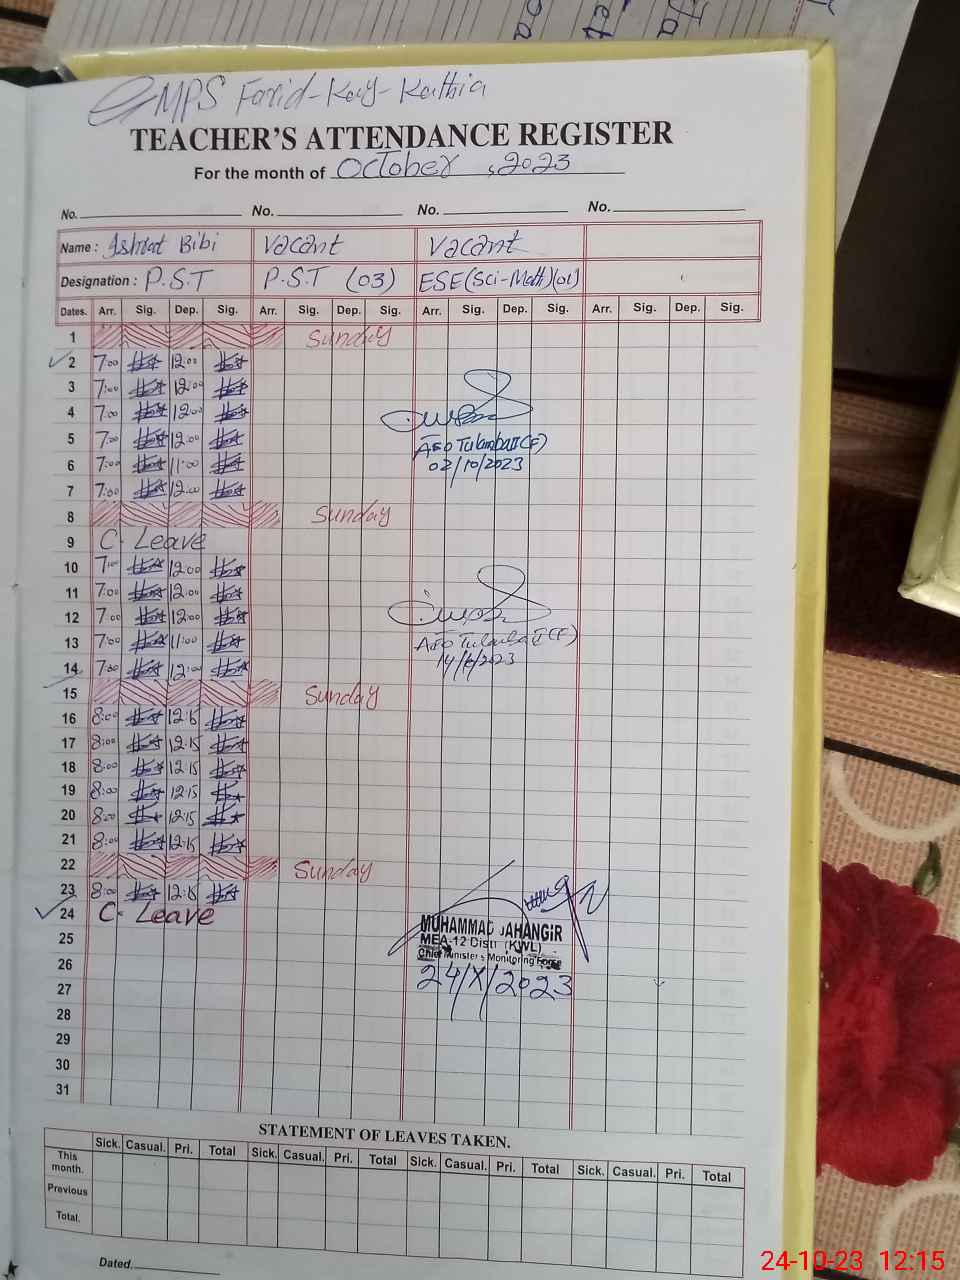 GMPS Farid-Kay-Kathia
TEACHER'S ATTENDANCE REGISTER
For the month of October, 2023
No. No. No. No.
Name : Ishrat Bibi Vacant Vacant
Designation : P.S.T P.S.T (03) ESE(Sci-Math)(01)
Dates. Arr. Sig. Dep. Sig. Arr. Sig. Dep. Sig. Arr. Sig. Dep. Sig. Arr. Sig. Dep. Sig.
1 Sunday
2 7:00 12:00
3 7:00 12:00
4 7:00 12:00
5 7:00 12:00 AEO Tulamba II (F)
6 7:00 11:00 02/10/2023
7 7:00 12:00
8 Sunday
9 C- Leave
10 7:00 12:00
11 7:00 12:00
12 7:00 12:00
13 7:00 11:00 AEO Tulamba II (F)
14 7:00 12:00
15 Sunday
16 8:00 12:15
17 8:00 12:15
18 8:00 12:15
19 8:00 12:15
20 8:00 12:15
21 8:00 12:15
22 Sunday
23 8:00 12:15
24 C- Leave MUHAMMAD JAHANGIR
25 MEA-12 Distt (KWL)
Chief Minister's Monitoring Force
26 24/X/2023
27
28
29
30
31
STATEMENT OF LEAVES TAKEN.
Sick. Casual. Pri. Total Sick. Casual. Pri. Total Sick. Casual. Pri. Total Sick. Casual. Pri. Total
This month.
Previous
Total.
Dated.
24-10-23 12:15